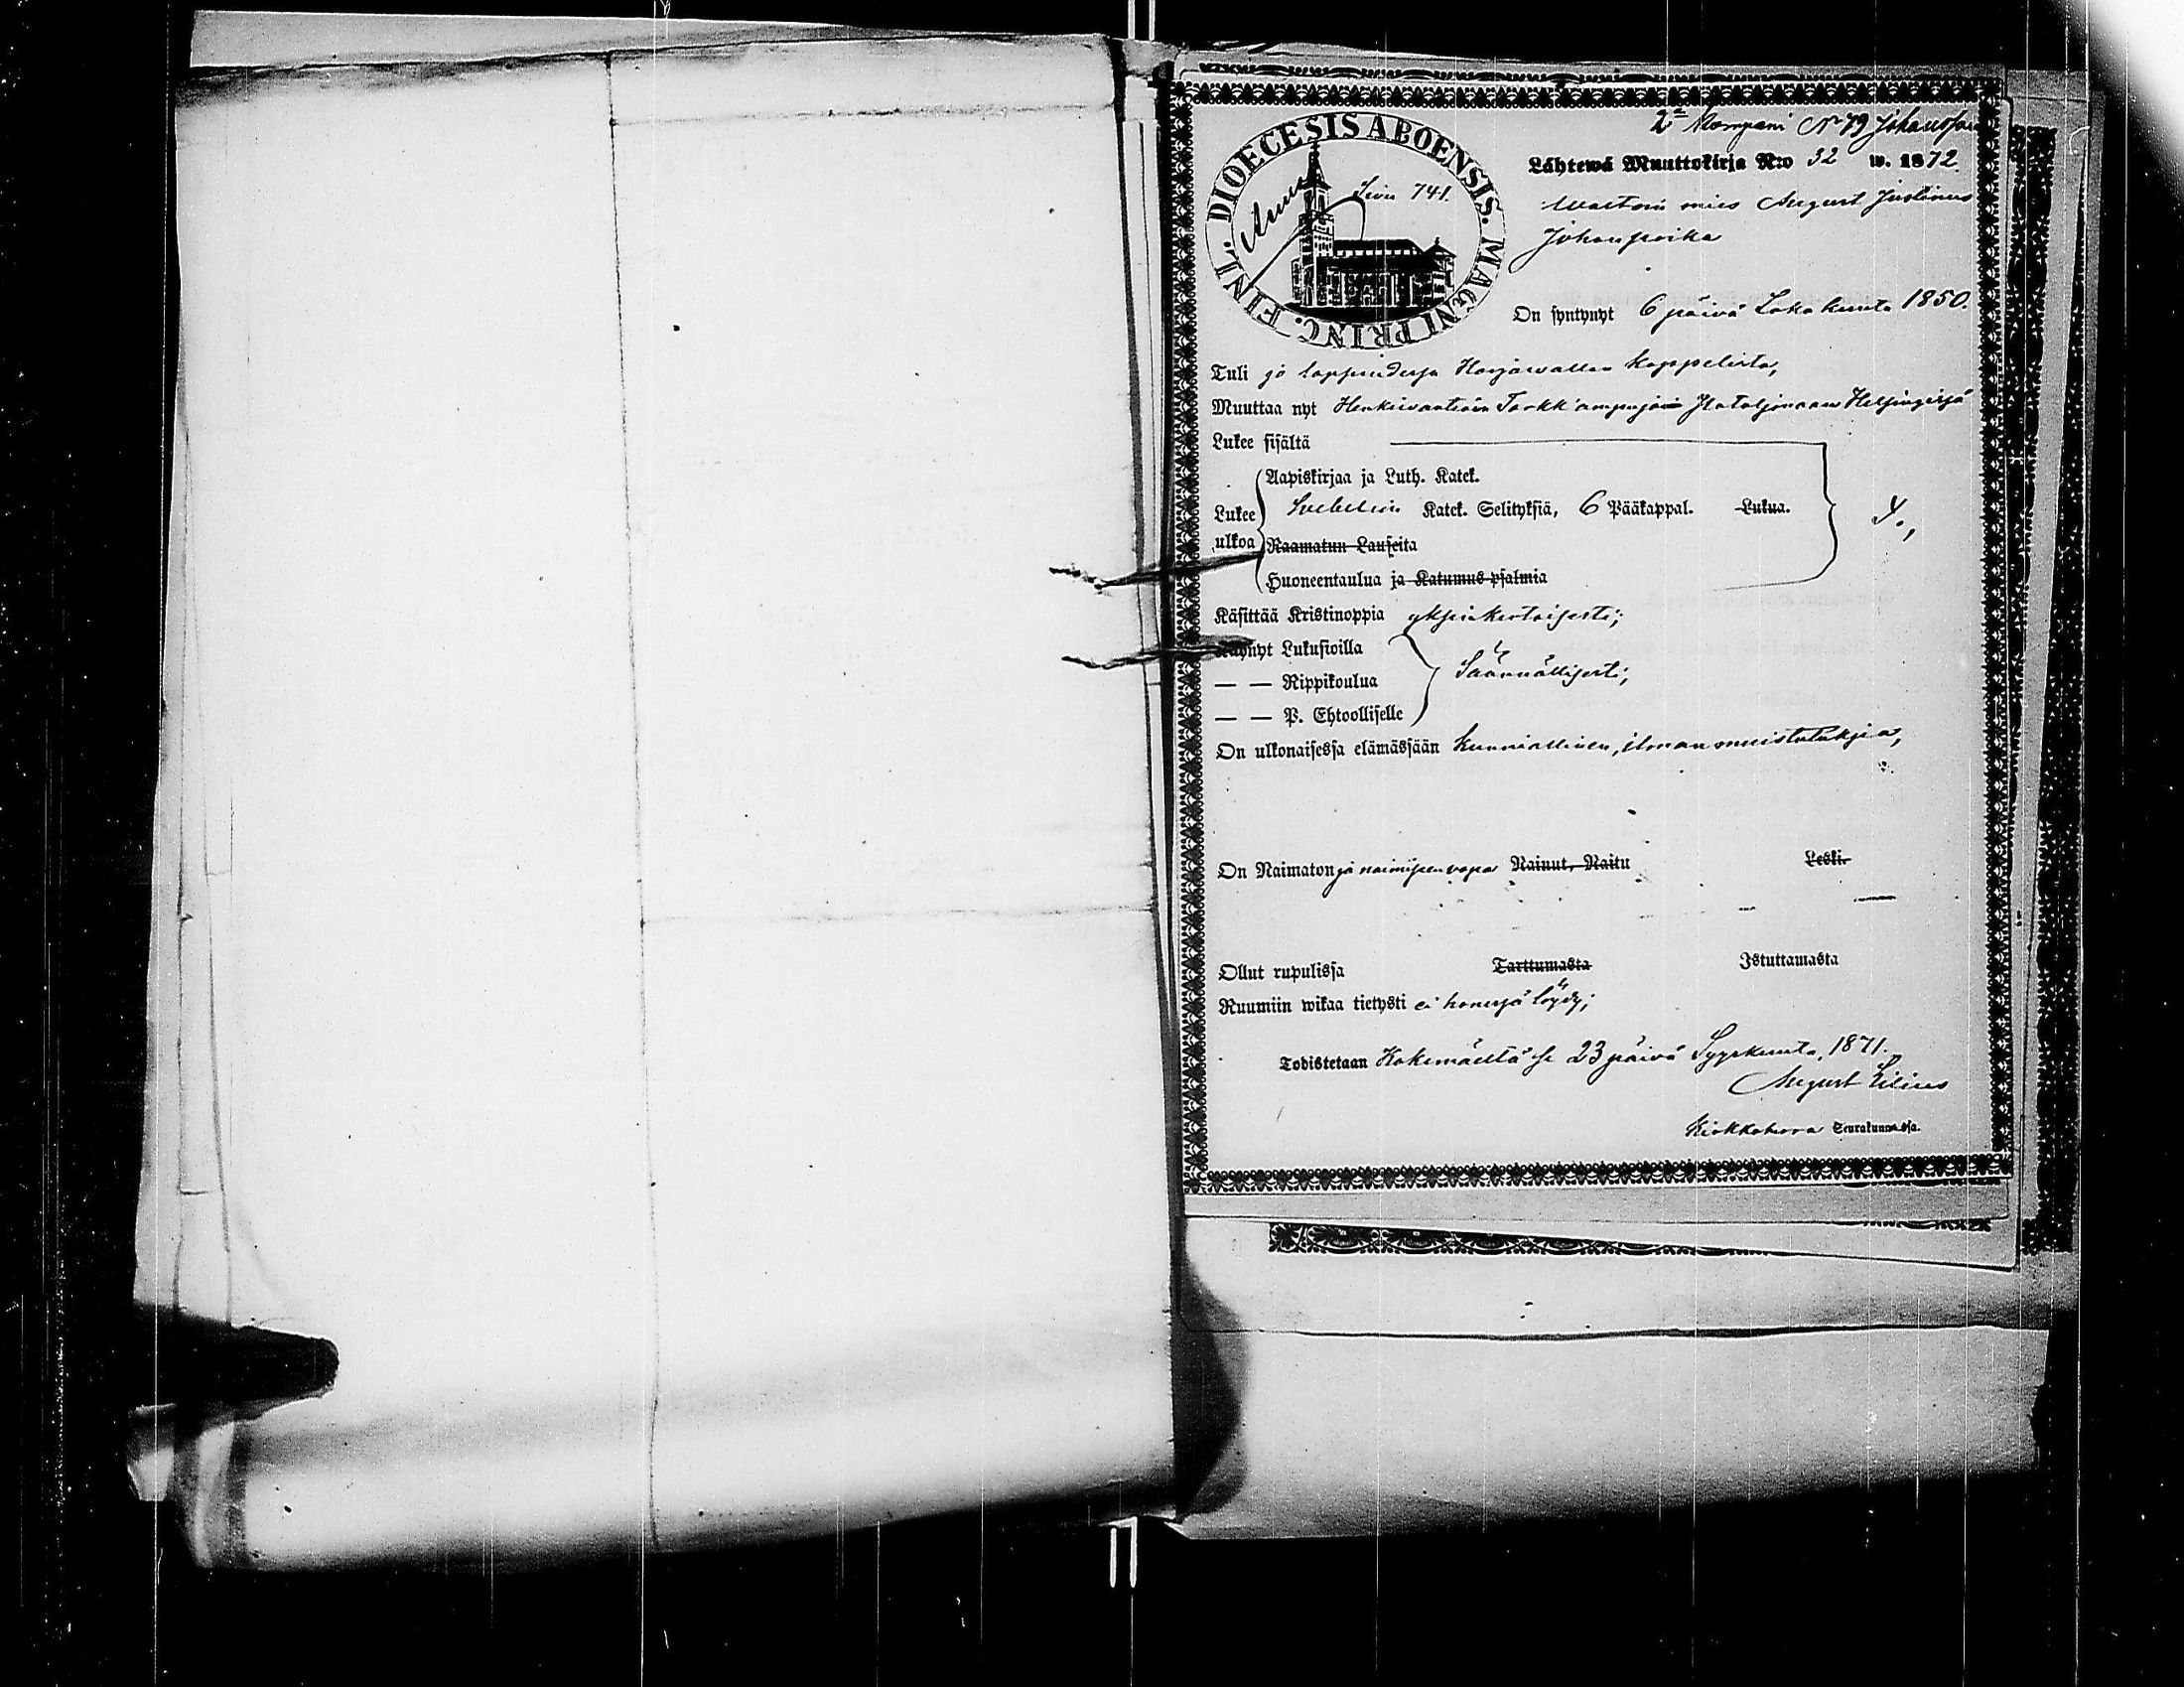 2ª Kompani N 79 Johansson
DIOECESIS ABOENSIS. MAGNI PRINC. FINL.
Sivu 741.
Lähtewä Muuttokirja N:o 32 w. 1872.
mies August Justinus
Johanpoika
On syntynyt 6 päivä Lokakuuta 1850.
Tuli jo lapsuudessa Harjawallan kappelista,
Muuttaa nyt Henkivartiowäen Tarkk'ampujain Pataljonaan Helsingissä
Lukee sisältä
Aapiskirjaa ja Luth. Katek.
Lukee ulkoa
Svebelion Katek. Selityksiä, 6 Pääkappal. Lukua.
Raamatun Lauseita
Huoneentaulua ja Katumus-psalmia
Käsittää Kristinoppia yksinkertaisesti;
Käynyt Lukusioilla
— — Rippikoulua
Säännöllisesti;
— — P. Ehtoolliselle
On ulkonaisessa elämässään kunniallinen, ilman muistutuksia,
On Naimaton ja naimiseen vapaa Nainut, Naitu Leski.
Ollut rupulissa Tarttumasta Istuttamasta
Ruumiin wikaa tietysti ei hänessä löydy;
Todistetaan Kokemäeltä se 23 päivä Syyskuuta, 1871.
August Lilius
Kirkkoherra Seurakunnassa.